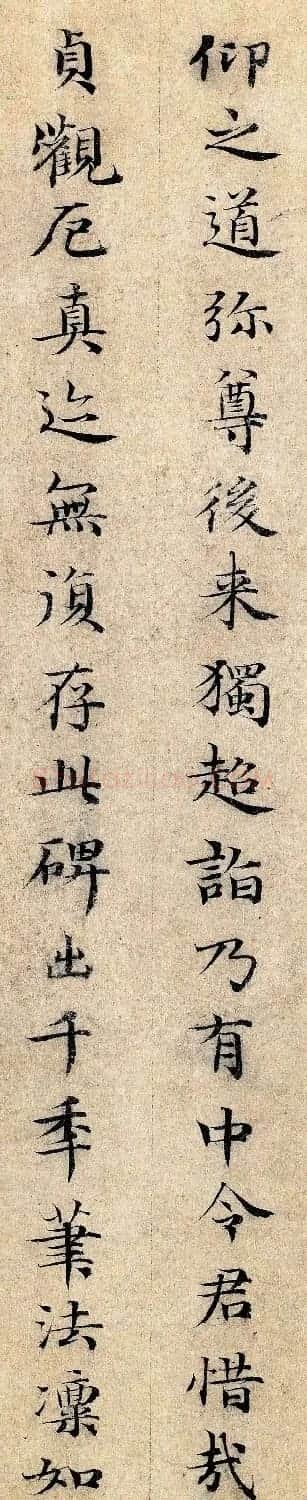 仰之道弥尊後来獨超詣乃有中令君惜哉
貞觀厄真迹無須存此碑出千季筆法凛如